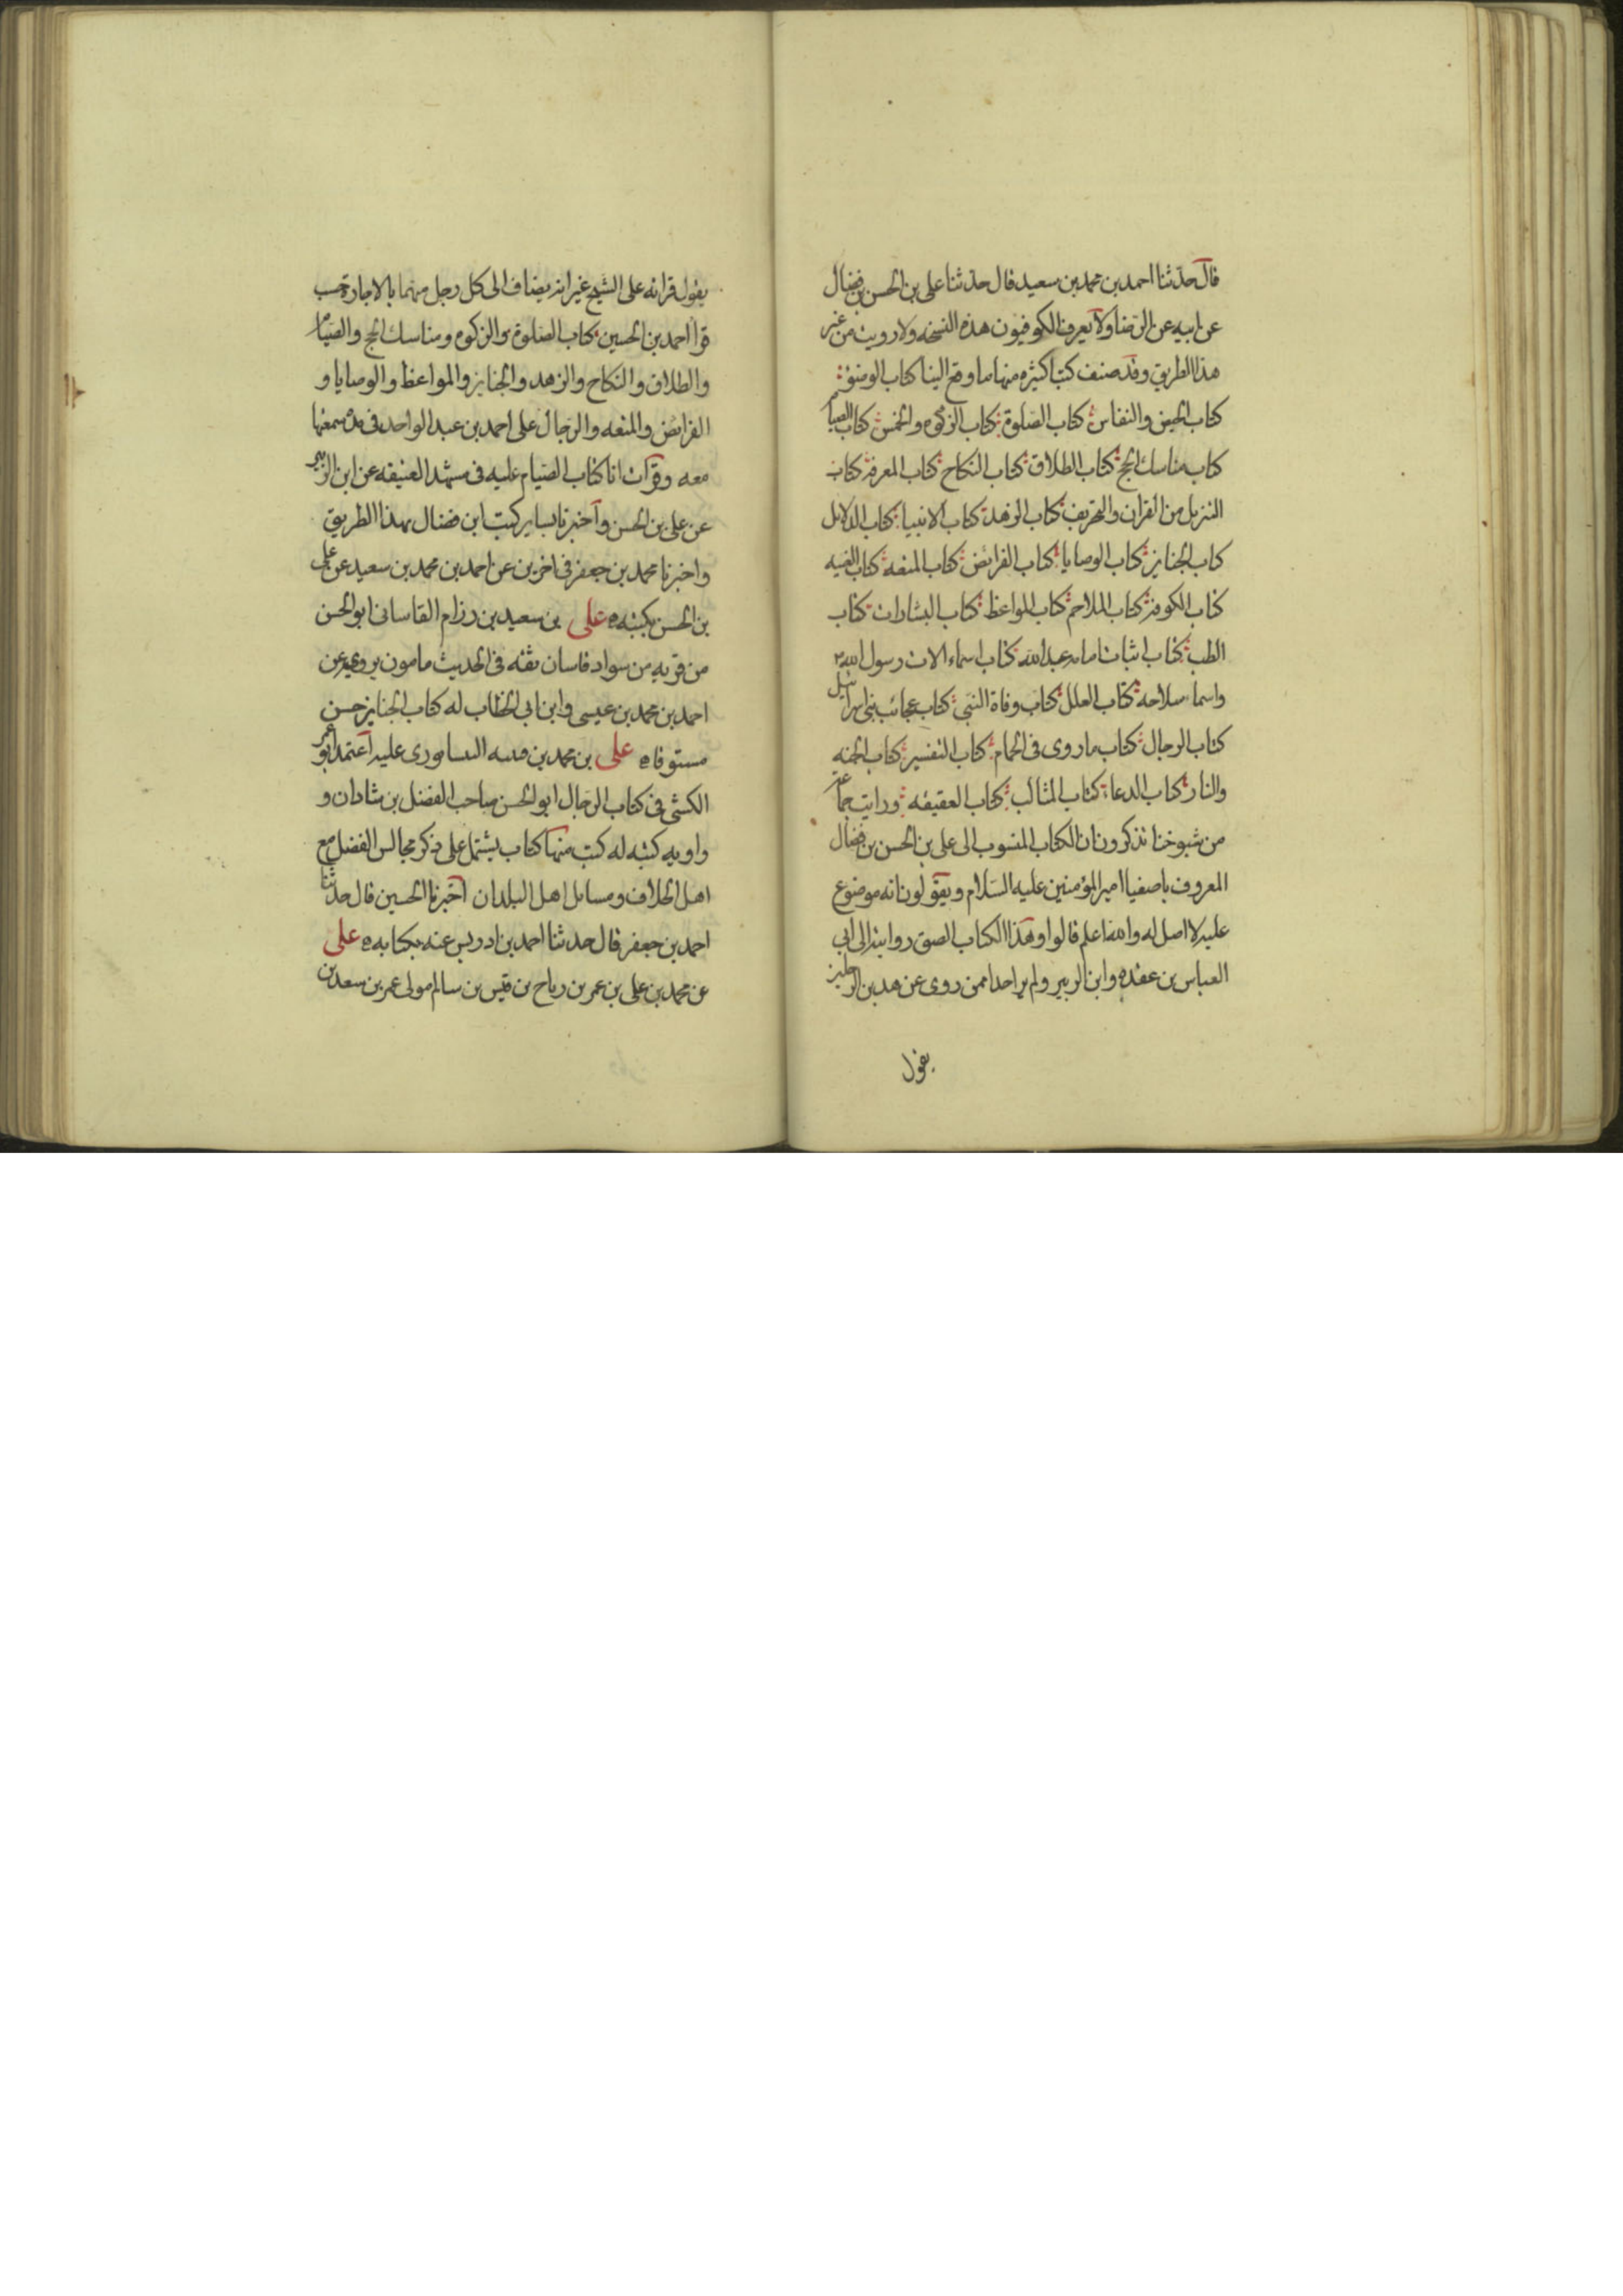 قال حدثنا احمد بن محمد بن سعيد قال حدثنا علي بن الحسن بن فضال
عن ابيه عن الرضا ولا يعرف الكوفيون هذه النسخه ولا رويت من غير
هذا الطريق وقد صنف كتبا كثيره منها ما وقع الينا كتاب الوضوء
كتاب الحيض والنفاس كتاب الصلوة كتاب الزكوه والخمس كتاب الصيام
كتاب مناسك الحج كتاب الطلاق كتاب النكاح كتاب المعرفة كتاب
التنزيل من القران والتحريف كتاب الزهد كتاب الانبيا كتاب الدلايل
كتاب الجنايز كتاب الوصايا كتاب الفرائض كتاب المتعه كتاب الغيبه
كتاب الكوفة كتاب الملاحم كتاب المواعظ كتاب البشارات كتاب
الطب كتاب اثبات امامه عبد الله كتاب اسماء الات رسول الله
واسماء سلاحه كتاب العلل كتاب وفاة النبي كتاب عجائب بني اسرائيل
كتاب الرجال كتاب ما روى في الحمام كتاب التفسير كتاب الجنه
والنار كتاب الدعاء كتاب المثالب كتاب العقيقه ورايت جماعة
من شيوخنا يذكرون ان الكتاب المنسوب الى علي بن الحسن بن فضال
المعروف باصفيا امير المؤمنين عليه السلام ويقولون انه موضوع
عليه لا اصل له والله اعلم قالوا وهذا الكتاب الصق روايته الى ابي
العباس بن عقده وابن الزبير ولم ير احدا ممن روى عن هذين الرجلين
يقول
يقول قراته على الشيخ غير انه يضاف الى كل رجل منهما بالاجازة حسب
قرا احمد بن الحسين كتاب الصلوة والزكوه ومناسك الحج والصيام
والطلاق والنكاح والزهد والجنايز والمواعظ والوصايا و
الفرائض والمتعه والرجال على احمد بن عبد الواحد في مدة سمعتها
معه وقرات انا كتاب الصيام عليه في مشهد العتيقه عن ابن الزبير
عن علي بن الحسن واخبرنا بساير كتب ابن فضال بهذا الطريق
واخبرنا محمد بن جعفر في اخرين عن احمد بن محمد بن سعيد عن علي
بن الحسن بكتبه علي بن سعيد بن رزام القاساني ابو الحسن
من قريه من سواد قاسان ثقه في الحديث مامون يروي عن
احمد بن محمد بن عيسى وابن ابي الخطاب له كتاب الجنايز حسن
مستوفاه علي بن محمد بن قتيبه النيسابوري عليه اعتمد ابو عمر
الكشي في كتاب الرجال ابو الحسن صاحب الفضل بن شادان و
راويه كتبه له كتب منها كتاب يشتمل على ذكر مجالس الفضل مع
اهل الخلاف ومسايل اهل البلدان اخبرنا الحسين قال حدثنا
احمد بن جعفر قال حدثنا احمد بن ادريس عنه بكتابه علي
بن محمد بن علي بن عمر بن رباح بن قيس بن سالم مولى عمر بن سعد بن